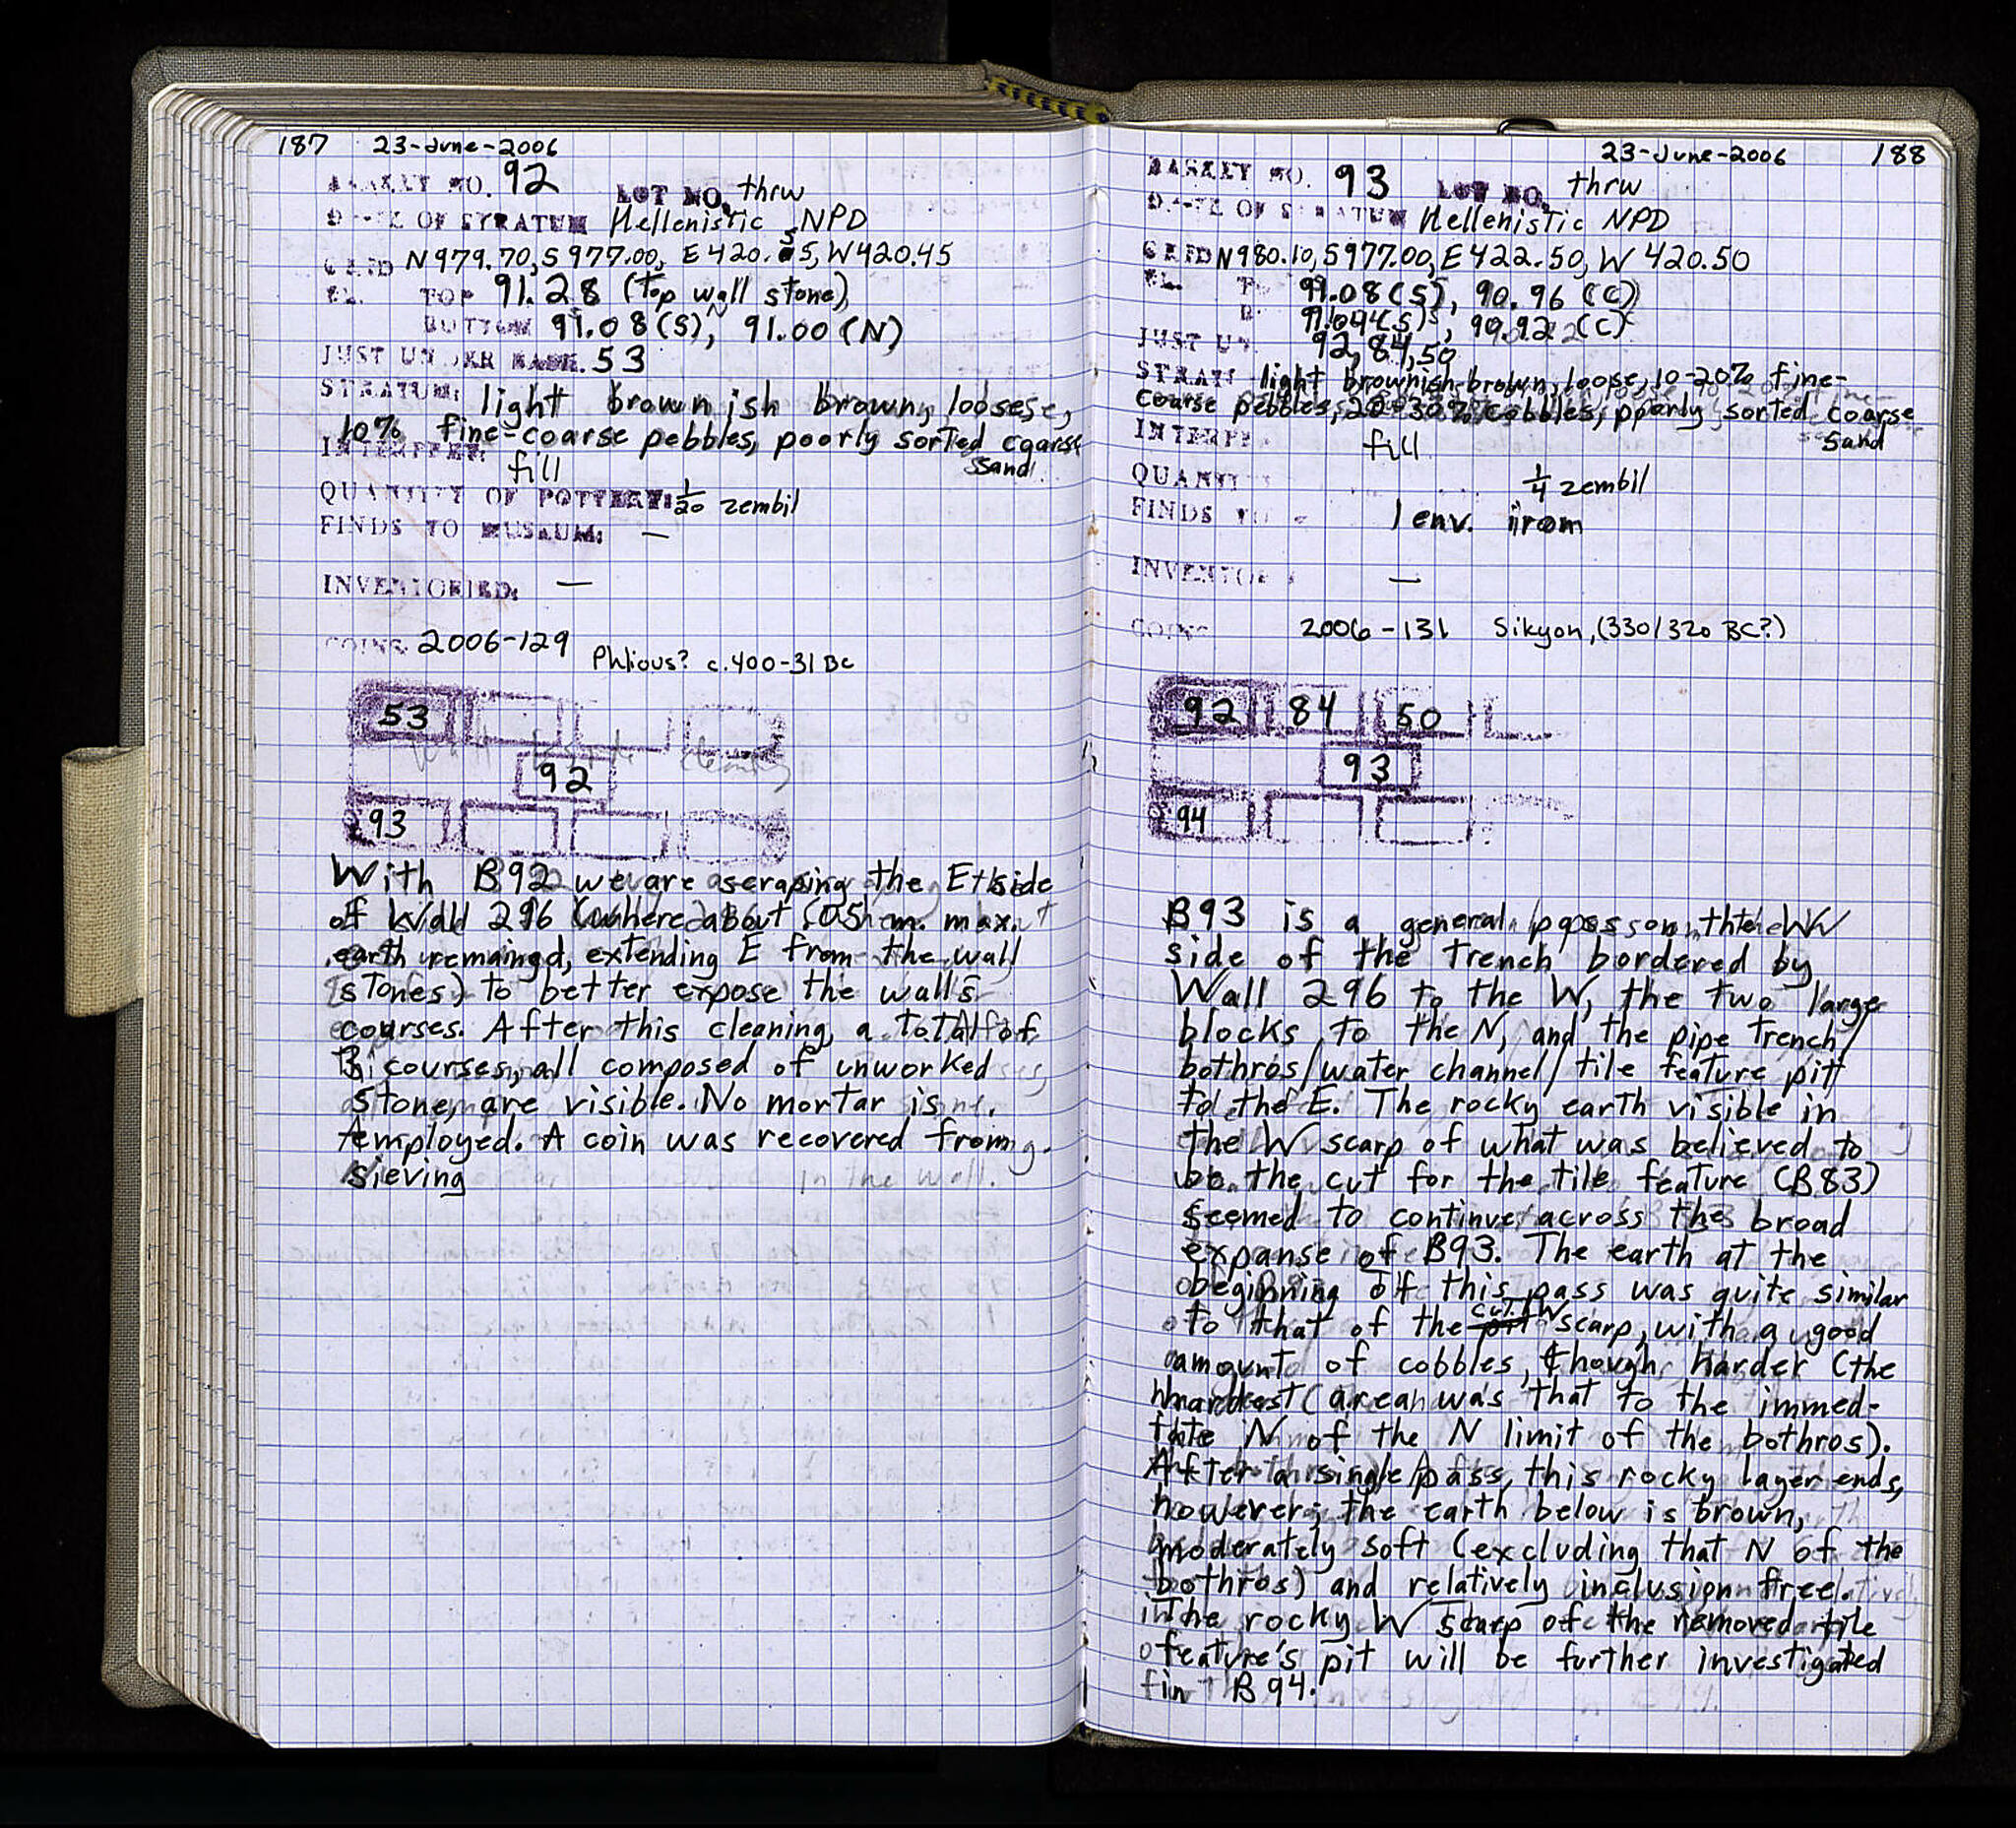 187 23-June-2006
BASKET NO. 92 LOT NO. thrw
DATE OF STRATUM Hellenistic NPD
GRID N979.70, S977.00, E420.55, W420.45
EL. TOP 91.28 (top wall stone)
BOTTOM 91.08 (S), 91.00 (N)
JUST UNDER BASK. 53
STRATUM: light brownish brown, loose,
10% fine-coarse pebbles, poorly sorted coarse
sand
INTERPRET: fill
QUANTITY OF POTTERY: 1/20 zembil
FINDS TO MUSEUM: —
INVENTORIED: —
COINS: 2006-129 Phlious? c.400-31 BC
53
92
93
With B92 we are scraping the E side
of Wall 296 (where about .05 m. max.
earth remained, extending E from the wall
stones) to better expose the wall's
courses. After this cleaning, a total of
3 courses, all composed of unworked
stone, are visible. No mortar is
employed. A coin was recovered from
sieving
23-June-2006 188
BASKET NO. 93 LOT NO. thrw
DATE OF STRATUM Hellenistic NPD
GRID N980.10, S977.00, E422.50, W420.50
EL. T 91.08 (S), 90.96 (C)
B 91.04 (S), 90.92 (C)
JUST UN 92, 84, 50
STRAT light brownish brown, loose, 10-20% fine-
coarse pebbles, 20-30% cobbles, poorly sorted coarse
sand
INTERPR fill
QUANTI 1/4 zembil
FINDS TO 1 env. iron
INVENTOR —
COINS 2006-131 Sikyon, (330/320 BC?)
92 84 50
93
94
B93 is a general pass on the W
side of the trench bordered by
Wall 296 to the W, the two large
blocks to the N, and the pipe trench/
bothros/water channel/tile feature pit
to the E. The rocky earth visible in
the W scarp of what was believed to
be the cut for the tile feature (B83)
seemed to continue across the broad
expanse of B93. The earth at the
beginning of this pass was quite similar
to that of the cut's W scarp, with a good
amount of cobbles, though harder (the
hardest area was that to the immed-
iate N of the N limit of the bothros).
After a single pass, this rocky layer ends,
however; the earth below is brown,
moderately soft (excluding that N of the
bothros) and relatively inclusion free.
The rocky W scarp of the removed tile
feature's pit will be further investigated
in B94.